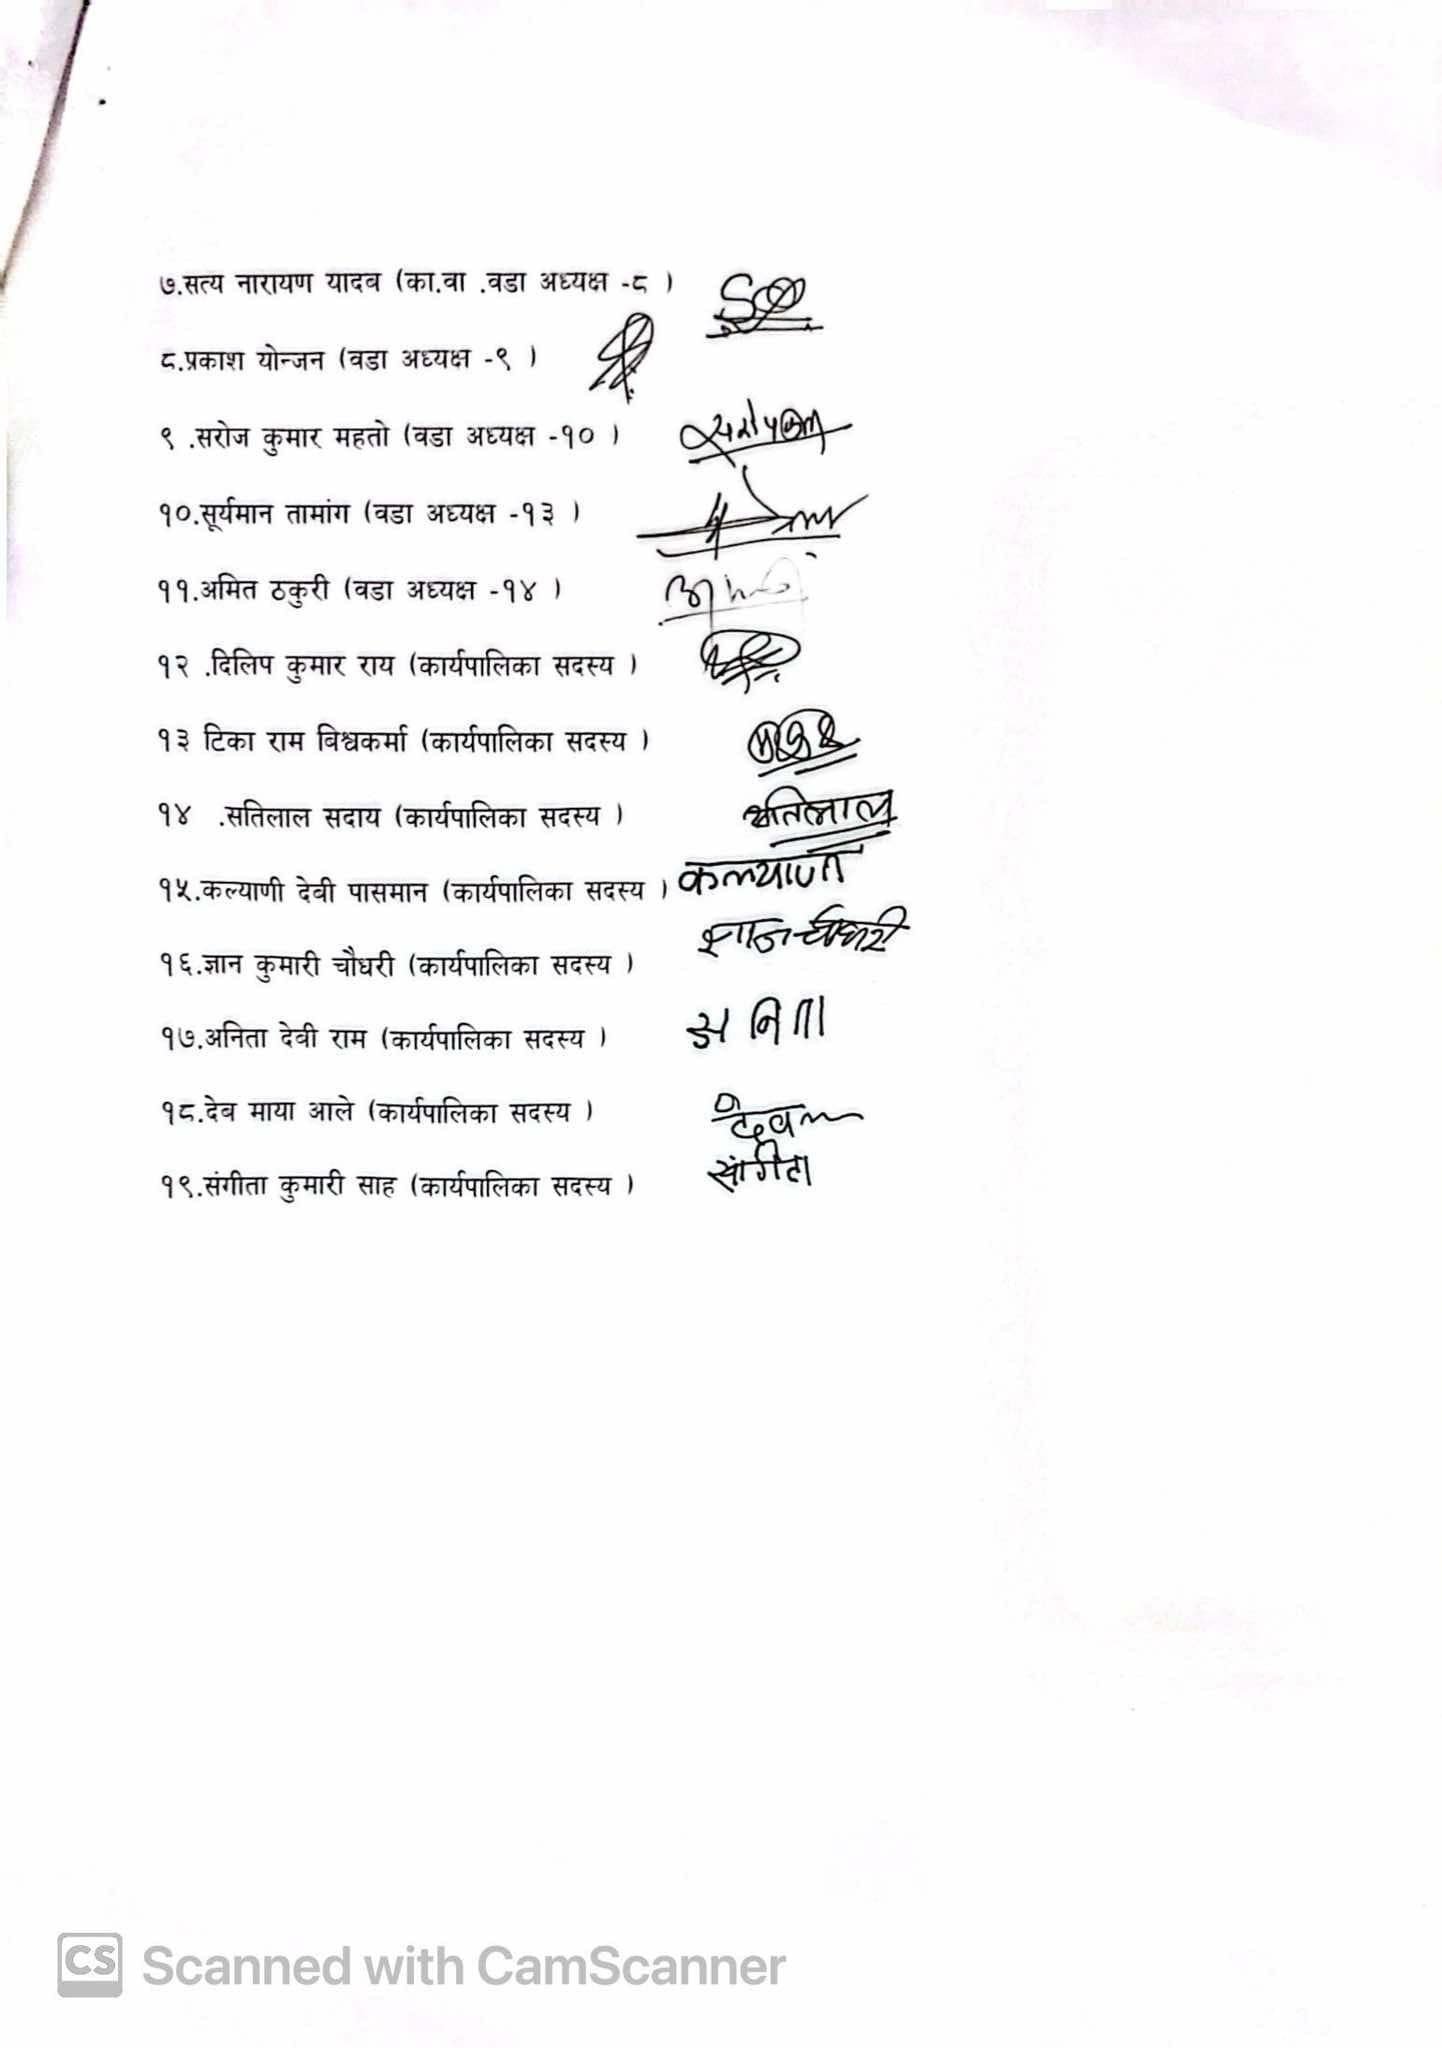 ७.सत्य नारायण यादव (का.वा .वडा अध्यक्ष -८ )
८.प्रकाश योन्जन (वडा अध्यक्ष -९ )
९ .सरोज कुमार महतो (वडा अध्यक्ष -१० )
१०.सूर्यमान तामांग (वडा अध्यक्ष -१३ )
११.अमित ठकुरी (वडा अध्यक्ष -१४ )
१२ .दिलिप कुमार राय (कार्यपालिका सदस्य )
१३ टिका राम बिश्वकर्मा (कार्यपालिका सदस्य )
१४ .सतिलाल सदाय (कार्यपालिका सदस्य ) सतिलाल
१५.कल्याणी देबी पासमान (कार्यपालिका सदस्य ) कल्याणी
१६.ज्ञान कुमारी चौधरी (कार्यपालिका सदस्य )
१७.अनिता देबी राम (कार्यपालिका सदस्य ) अनिता
१८.देब माया आले (कार्यपालिका सदस्य )
१९.संगीता कुमारी साह (कार्यपालिका सदस्य )
CS Scanned with CamScanner